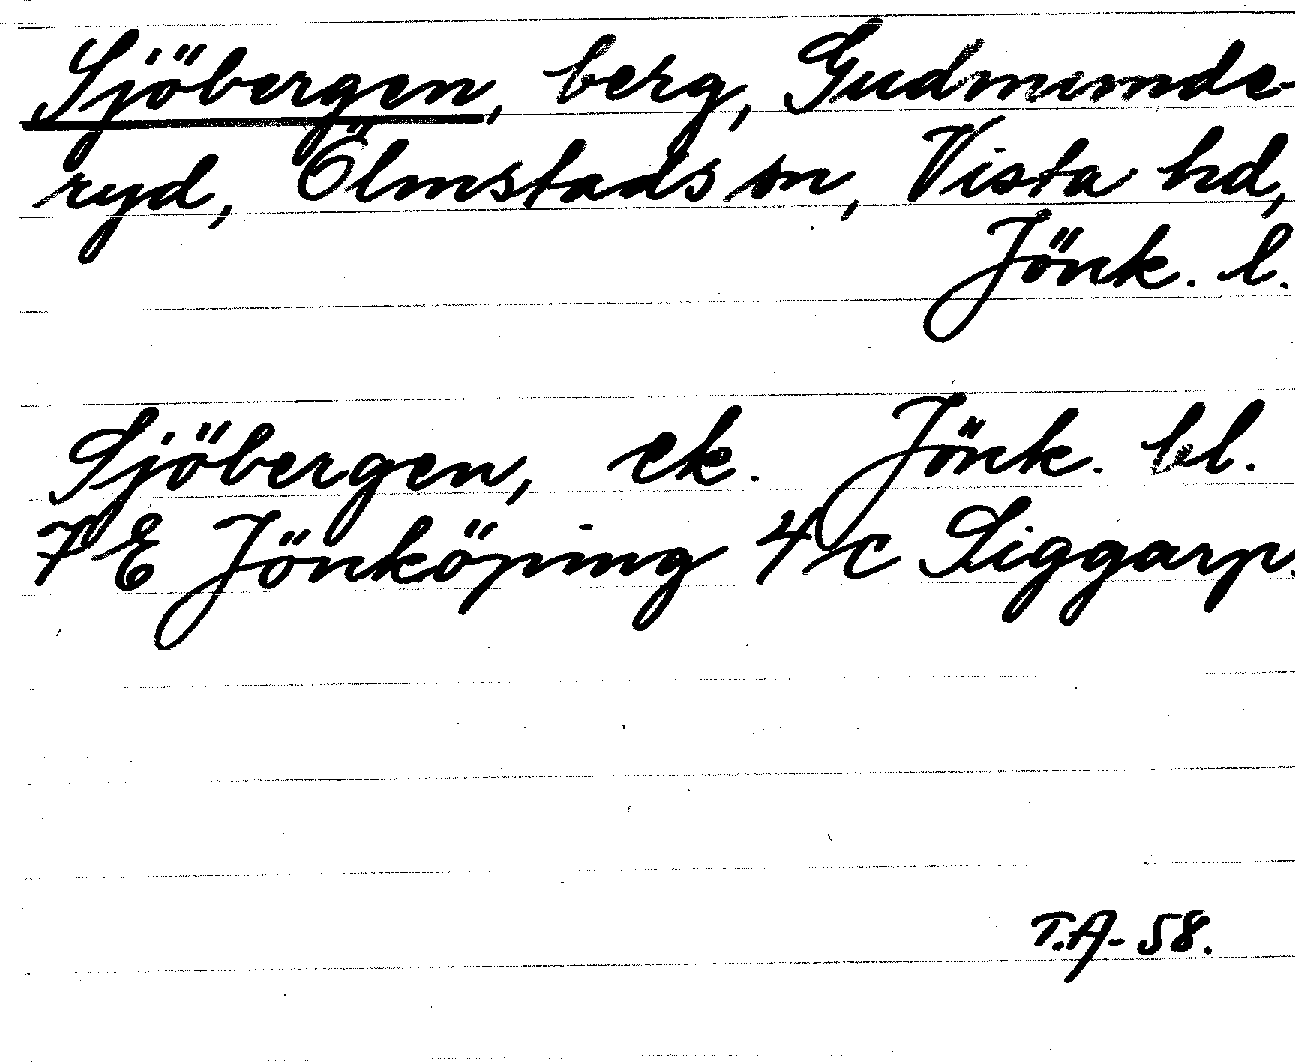 Sjöbergen, berg, Gudmunde-
ryd, Ölmstads sn, Vista hd,
Jönk. l.
Sjöbergen, ek. Jönk. bl.
7 E Jönköping 4 c Siggarp.
T.A. 58.